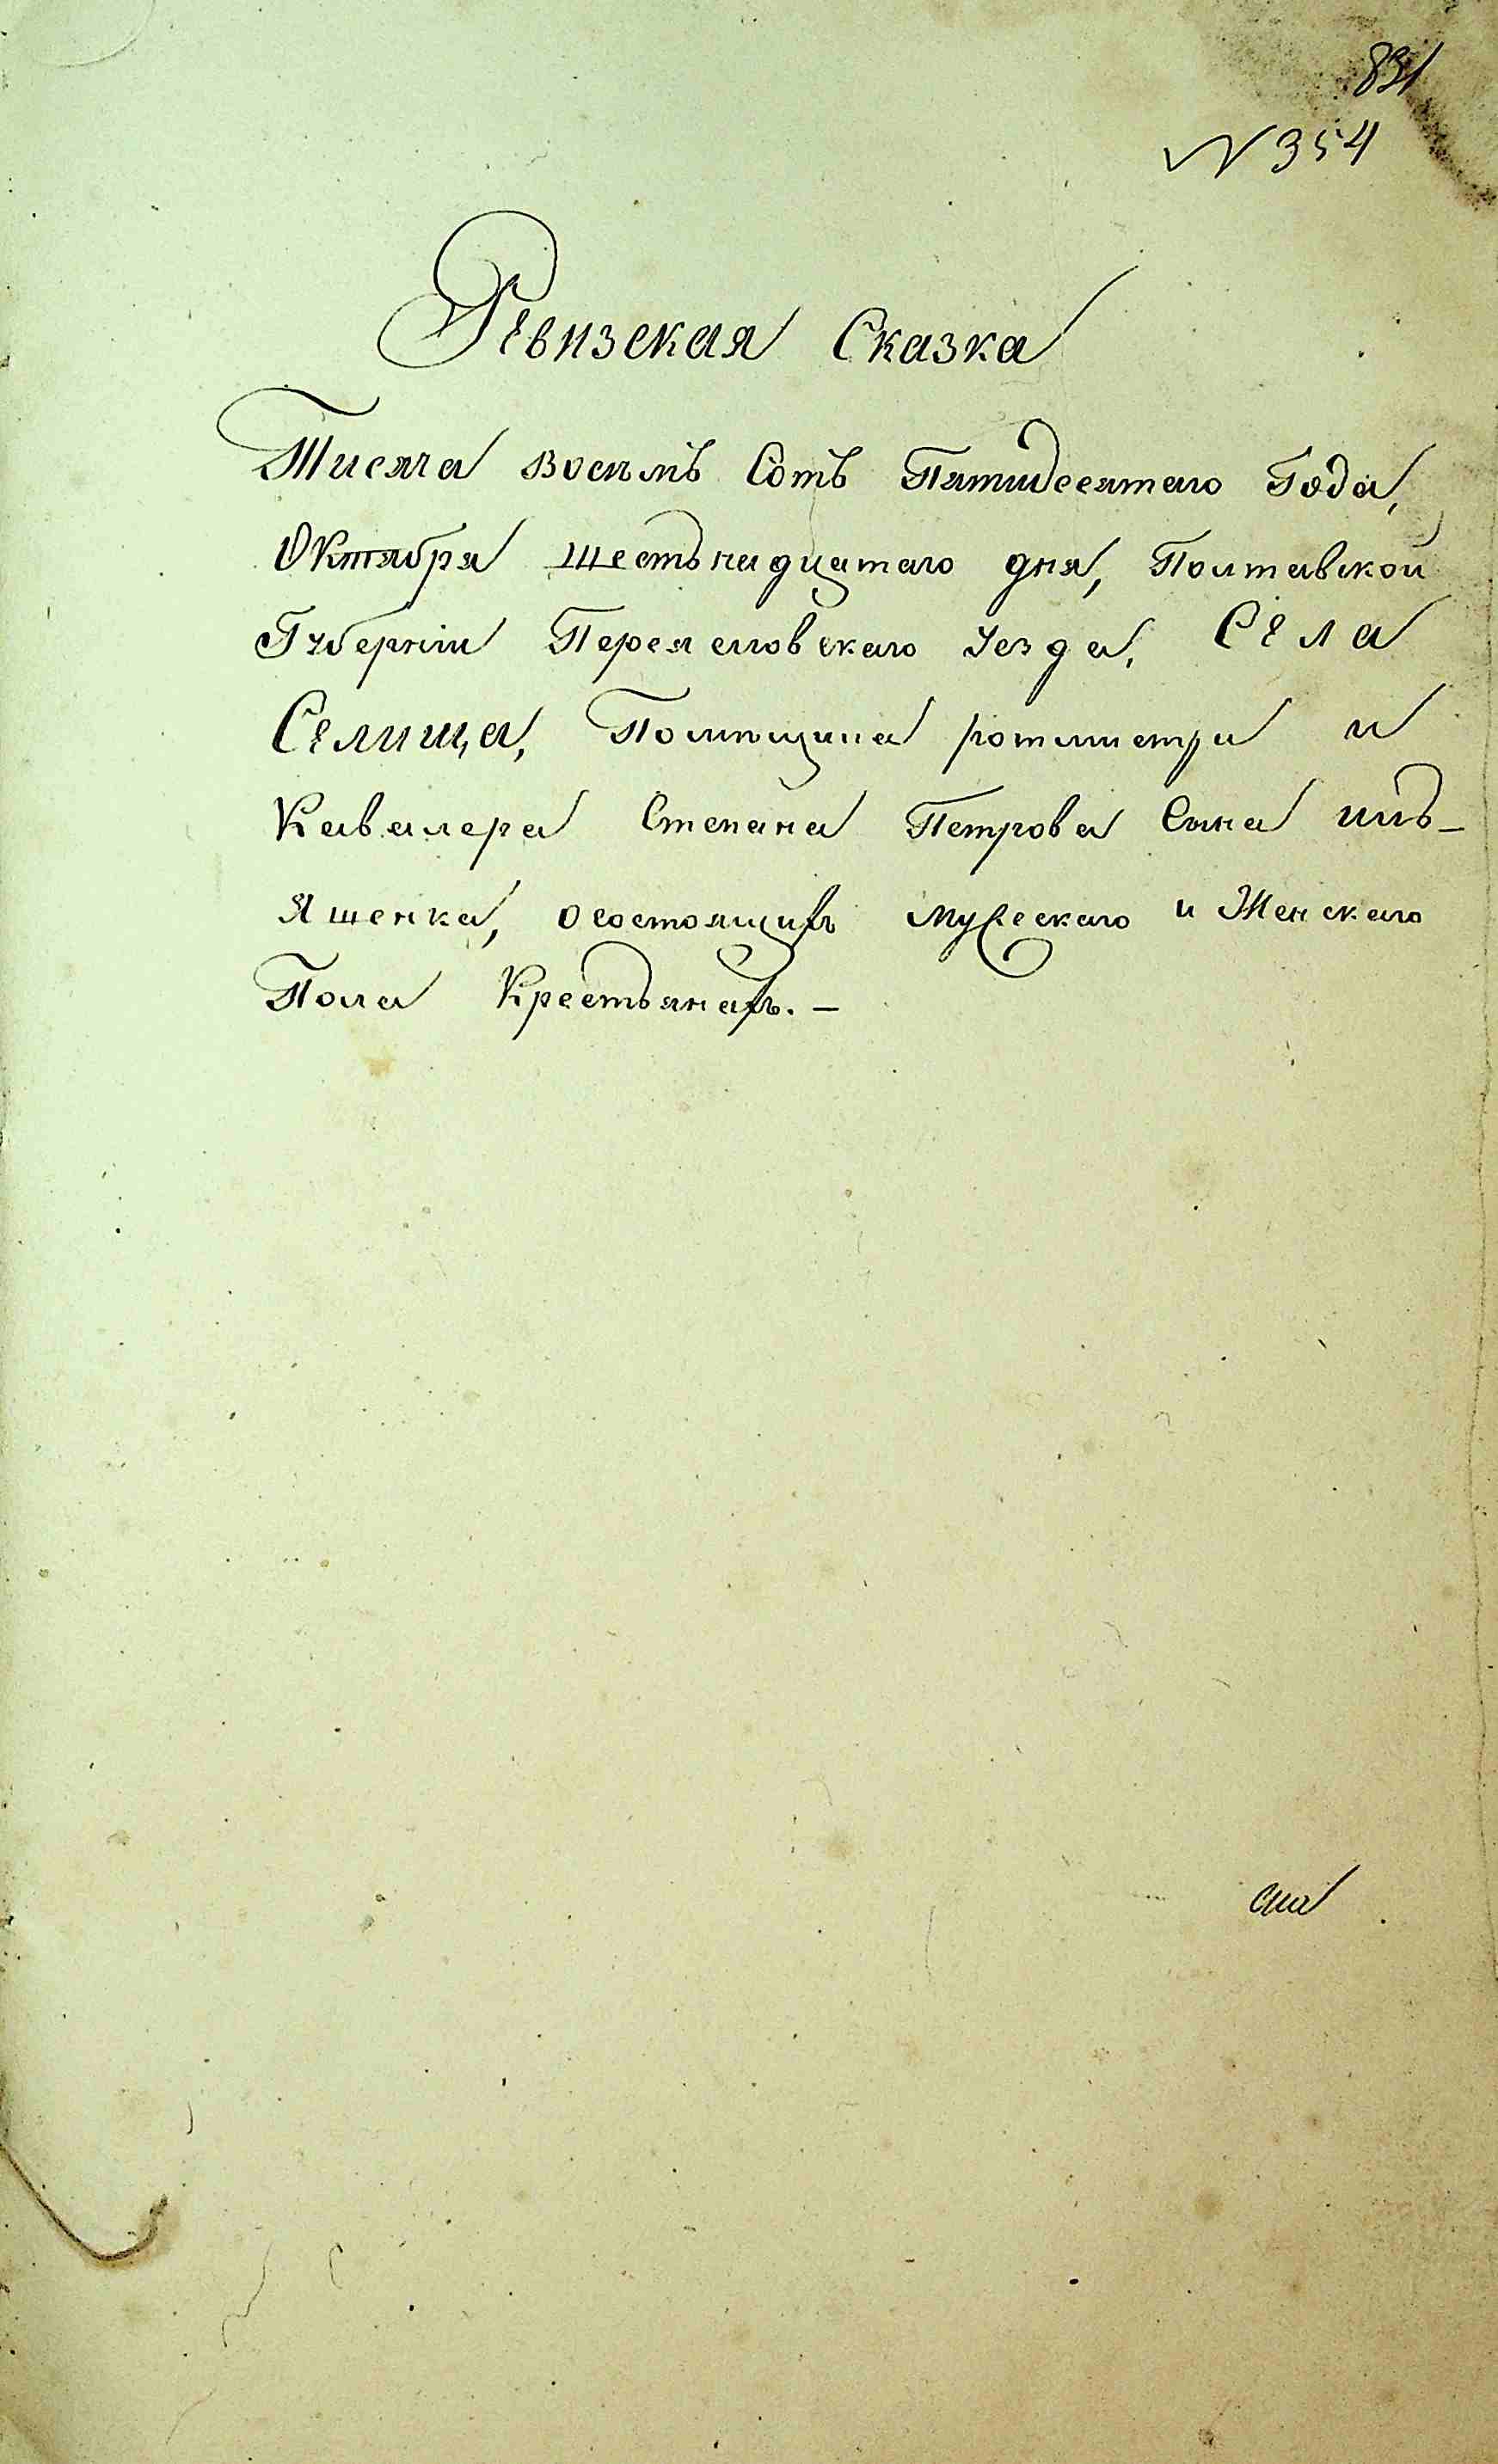 831
№ 354
Ревизская Сказка
Тисяча восемъ Сотъ Пятидесятаго Года,
Октября шестьнадцатаго дня, Полтавской
Губерніи Переяславскаго Уезда, Села
Селища, Помѣщика ротмистра и
Кавалера Степана Петрова Сына
Яшенка, о состоящихъ мужескаго и Женскаго
Пола Крестьянахъ. –